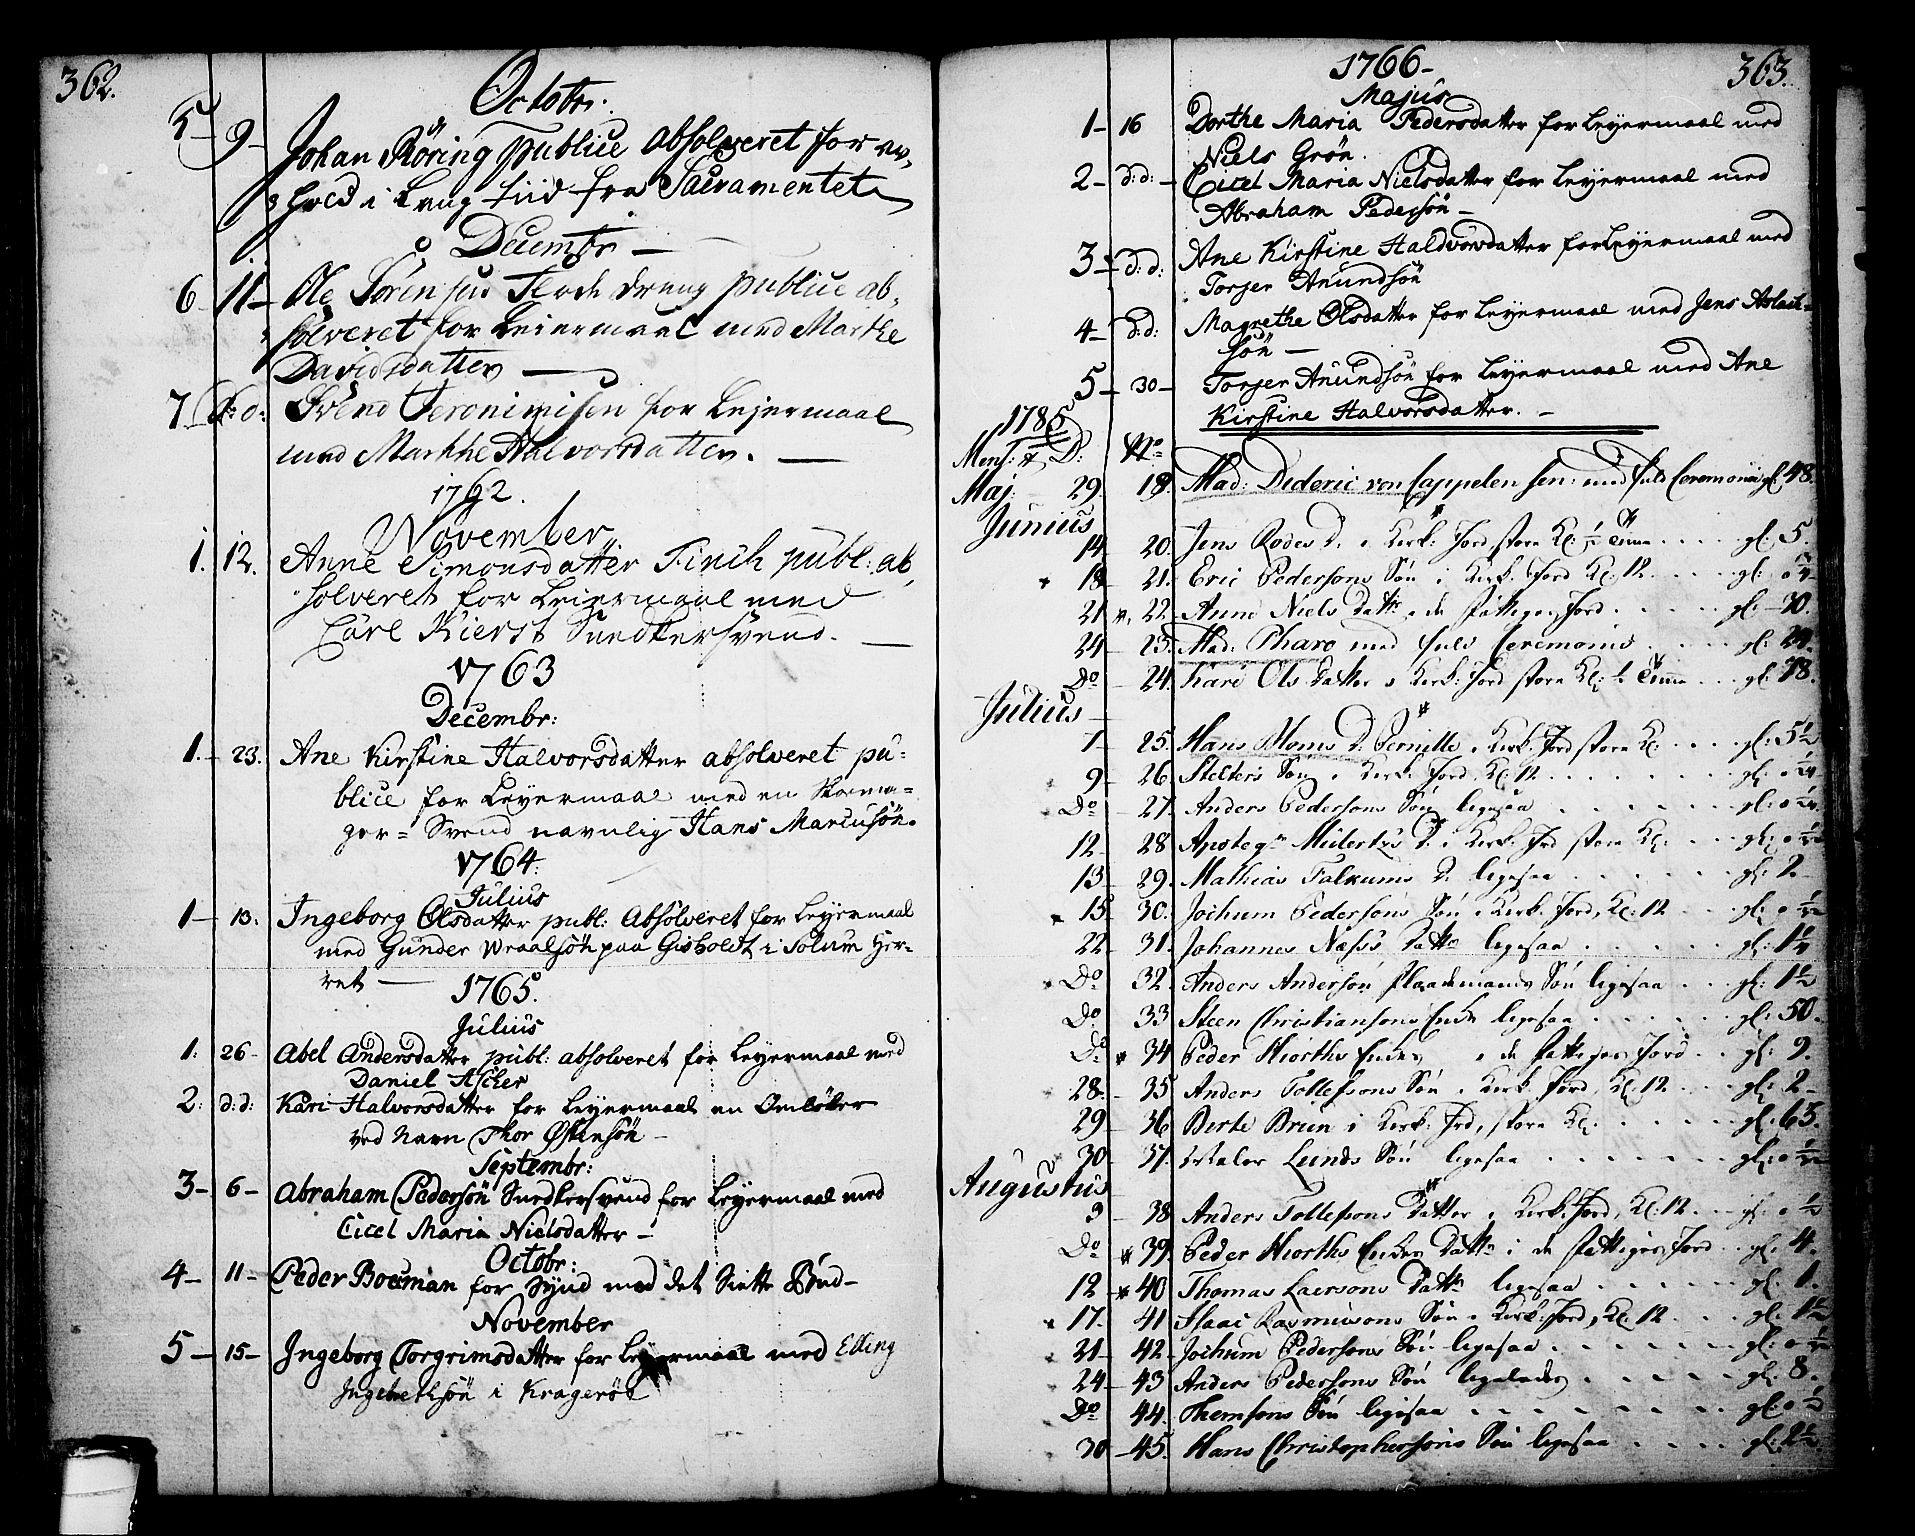 362.
Octobr:
5 – 9 – Johan Röring publice absolveret for
hold i Lang tiid fra Sacramentet
Decembr –
6 11 – Ole Sörensen dreng publice ab-
solveret for Leiermaal med Marthe
Davidsdatter –
7 d: d: Svend Jeronimisen for Lejermaal
med Marthe Halvorsdatter. –
1762.
November
1. 12. Anne Simonsdatter Finck publ: ab
solveret for Leiermaal med
Carl Kierst Snedkersvend. –
1763
Decembr:
1. – 23. Ane Kirstine Halvorsdatter absolveret pu-
blice for Leyermaal med en Skoma-
ger = Svend navnlig Hans Marcusön.
1764.
Julius
1 – 13. Ingeborg Olsdatter publ: Absolveret for Leyermaal
med Gunder Wraalsön paa Gisholdt i Solum Her-
ret –
1765.
Julius
1: 26 – Abel Andersdatter publ: absolveret for Leyermaal med
Daniel Ascher
2: d: d: Kari Halvorsdatter for Leyermaal en Omlöber
ved Navn Thor Östensön –
Septembr:
3 – 6 – Abraham Pedersön Snedkersvend for Leyermaal med
Cicel Maria Nielsdatter –
Octobr:
4 – 11 – Peder Boesman for Synd med det Siette Bud –
November
5 – 15 – Ingeborg Torgrimsdatter for Leyermaal med Elling
Ingebretsön i Krageröe
363.
1766 –
Majus
1 – 16 Dorthe Maria Pedersdatter for Leyermaal med
Niels Grön.
2 – d: d: – Cicel Maria Nielsdatter for Leyermaal med
Abraham Pedersön –
3 – d: d: Ane Kirstine Haldvorsdatter for Leyermaal med
Torger Anundsön
4 – d: d: Magrethe Olsdatter for Leyermaal med Jens Aslach-
sön –
5 – 30 – Torger Anundsön for Leyermaal med Ane
Kirstine Halvorsdatter. –
1785
Mens: D: No
Maj: 29. 18. Mad: Dideric von Cappelen sen: med fuld Ceremonie gl: 48.
Junius
14 20. Jens Rodes D. i Kirk: Jord store Kl: 1/2 Time gl: 5.
18 – 21. Eric Pedersons Sön i Kirk: Jord Kl: 12 gl: 0
21 22. Anne Niels Datter i de fattiges Jord gl: – 30.
24 – 23. Mad: Pharo med fuld Ceremonie gl: 24.
Do – 24. Kari Ols Datter i Kirk: Jord store Kl: 1/2 Time gl: 78.
Julius –
7 – 25. Hans Moms D. Pernille i Kirk: Jord store Kl: gl: 5 1/2
9 – 26. Stelters Sön i Kirk: Jord, Kl: 12 gl: 0
Do – 27. Anders Pedersons Sön ligesaa gl: 0
12 – 28 Apoteqr Mülertz's D. i Kirk: Jord store Kl: gl: 0
13 – 29. Mathias Falkums D. ligesaa gl: 2 –
15 30. Jochum Pedersons Sön i Kirk: Jord, Kl: 12 gl: 0
22 – 31. Johannes Næss's Datter ligesaa gl: 1
Do 32. Anders Anderson Sön ligesaa gl: 1 1/2
Do 33 Steen Christiansons Enke ligesaa gl: 50.
Do 34 Peder Hiorths Enke i de fattiges Jord gl: 9.
28 – 35 Anders Tollefsons Sön i Kirk: Jord, Kl: 12 gl: 2 –
29 – 36 Berte Brun i Kirk: Jord, store Kl: gl: 65.
30 – 37. Lunds Sön ligesaa gl: 0
Augustus
3 – 38. Anders Tollefsons Datter i Kirk: Jord, Kl: 12 gl: 0 1/2
Do 39. Peder Hiorths Enkes Datter i de fattiges Jord gl: 4.
12 – 40 Thomas Laersons Datter ligesaa gl: 1.
17. 41 Isaac Rasmusons Sön i Kirk: Jord, Kl: 12 gl: 1 1/2
21 – 42. Jochum Pedersons Sön ligesaa gl: 0
24 – 43 Anders Pedersons Sön gl: 8.
Do 44. Themsons Sön ligesaa gl: 0
30 – 45. Hans Christophersons Sön ligesaa gl: 2 1/2